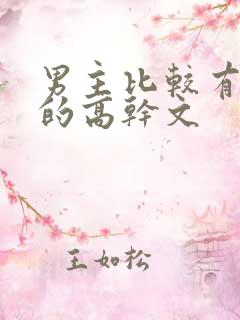 男主比較有
的高幹文
王如松